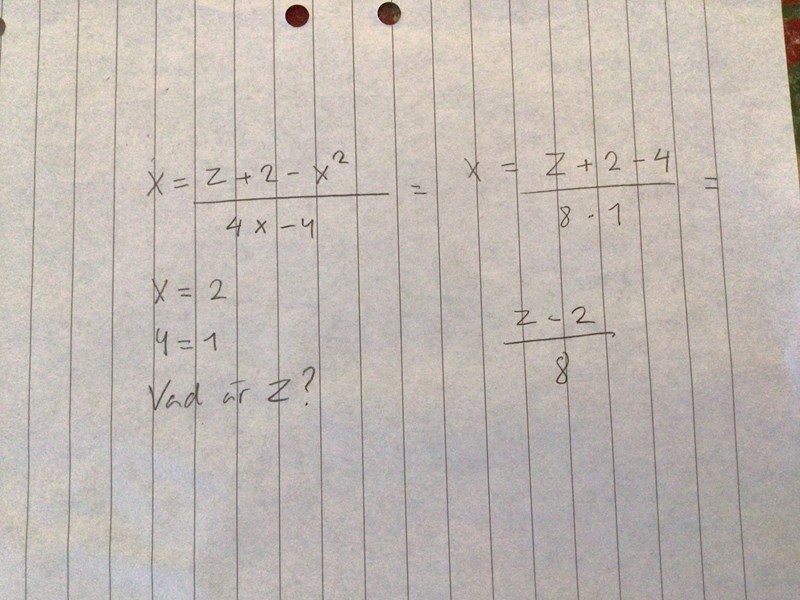 x = z + 2 - x²
4x - y
=
x = z + 2 - 4
8 · 1
=
x = 2
y = 1
Vad är z?
z - 2
8